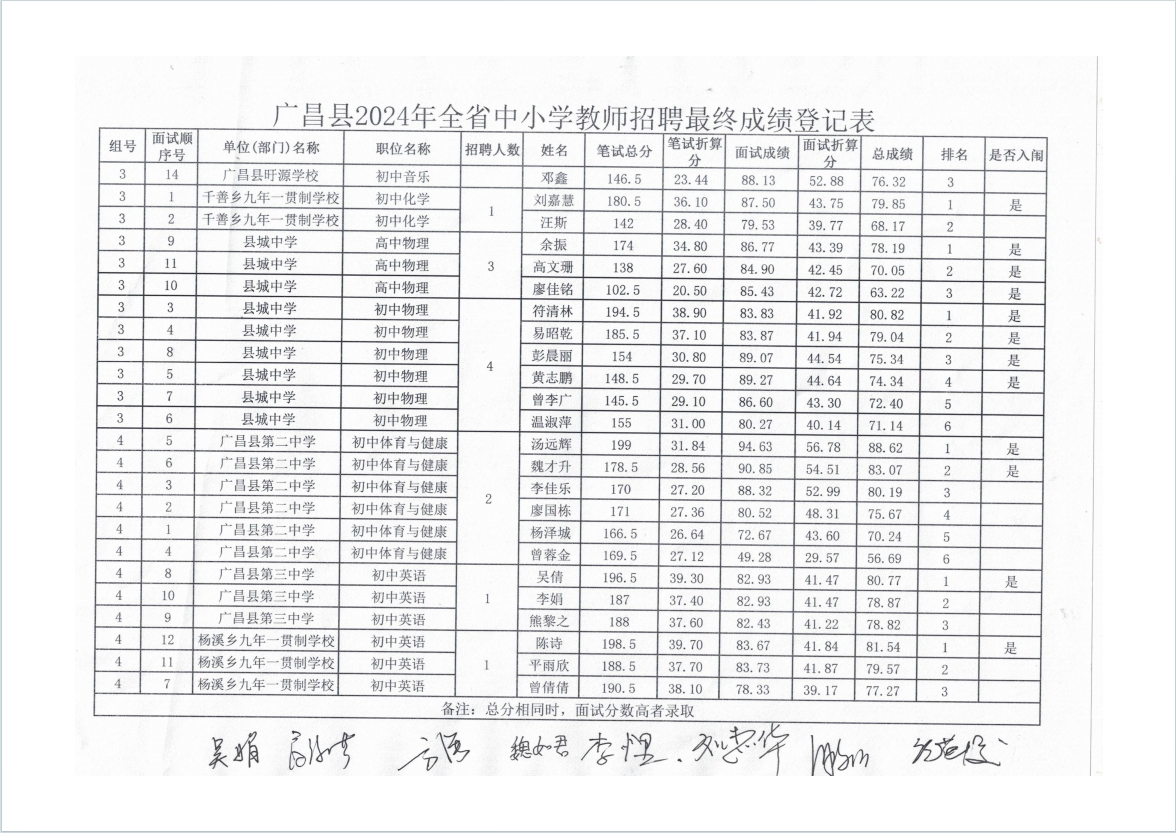 广昌县2024年全省中小学教师招聘最终成绩登记表
组号 面试顺序号 单位(部门)名称 职位名称 招聘人数 姓名 笔试总分 笔试折算分 面试成绩 面试折算分 总成绩 排名 是否入闱
3 14 广昌县旴源学校 初中音乐 邓鑫 146.5 23.44 88.13 52.88 76.32 3
3 1 千善乡九年一贯制学校 初中化学 1 刘嘉慧 180.5 36.10 87.50 43.75 79.85 1 是
3 2 千善乡九年一贯制学校 初中化学 汪斯 142 28.40 79.53 39.77 68.17 2
3 9 县城中学 高中物理 3 余振 174 34.80 86.77 43.39 78.19 1 是
3 11 县城中学 高中物理 高文珊 138 27.60 84.90 42.45 70.05 2 是
3 10 县城中学 高中物理 廖佳铭 102.5 20.50 85.43 42.72 63.22 3 是
3 3 县城中学 初中物理 4 符清林 194.5 38.90 83.83 41.92 80.82 1 是
3 4 县城中学 初中物理 易昭乾 185.5 37.10 83.87 41.94 79.04 2 是
3 8 县城中学 初中物理 彭晨丽 154 30.80 89.07 44.54 75.34 3 是
3 5 县城中学 初中物理 黄志鹏 148.5 29.70 89.27 44.64 74.34 4 是
3 7 县城中学 初中物理 曾李广 145.5 29.10 86.60 43.30 72.40 5
3 6 县城中学 初中物理 温淑萍 155 31.00 80.27 40.14 71.14 6
4 5 广昌县第二中学 初中体育与健康 2 汤远辉 199 31.84 94.63 56.78 88.62 1 是
4 6 广昌县第二中学 初中体育与健康 魏才升 178.5 28.56 90.85 54.51 83.07 2 是
4 3 广昌县第二中学 初中体育与健康 李佳乐 170 27.20 88.32 52.99 80.19 3
4 2 广昌县第二中学 初中体育与健康 廖国栋 171 27.36 80.52 48.31 75.67 4
4 1 广昌县第二中学 初中体育与健康 杨泽城 166.5 26.64 72.67 43.60 70.24 5
4 4 广昌县第二中学 初中体育与健康 曾蓉金 169.5 27.12 49.28 29.57 56.69 6
4 8 广昌县第三中学 初中英语 1 吴倩 196.5 39.30 82.93 41.47 80.77 1 是
4 10 广昌县第三中学 初中英语 李娟 187 37.40 82.93 41.47 78.87 2
4 9 广昌县第三中学 初中英语 熊黎之 188 37.60 82.43 41.22 78.82 3
4 12 杨溪乡九年一贯制学校 初中英语 1 陈诗 198.5 39.70 83.67 41.84 81.54 1 是
4 11 杨溪乡九年一贯制学校 初中英语 平雨欣 188.5 37.70 83.73 41.87 79.57 2
4 7 杨溪乡九年一贯制学校 初中英语 曾倩倩 190.5 38.10 78.33 39.17 77.27 3
备注：总分相同时，面试分数高者录取
吴娟 魏如君 刘志华